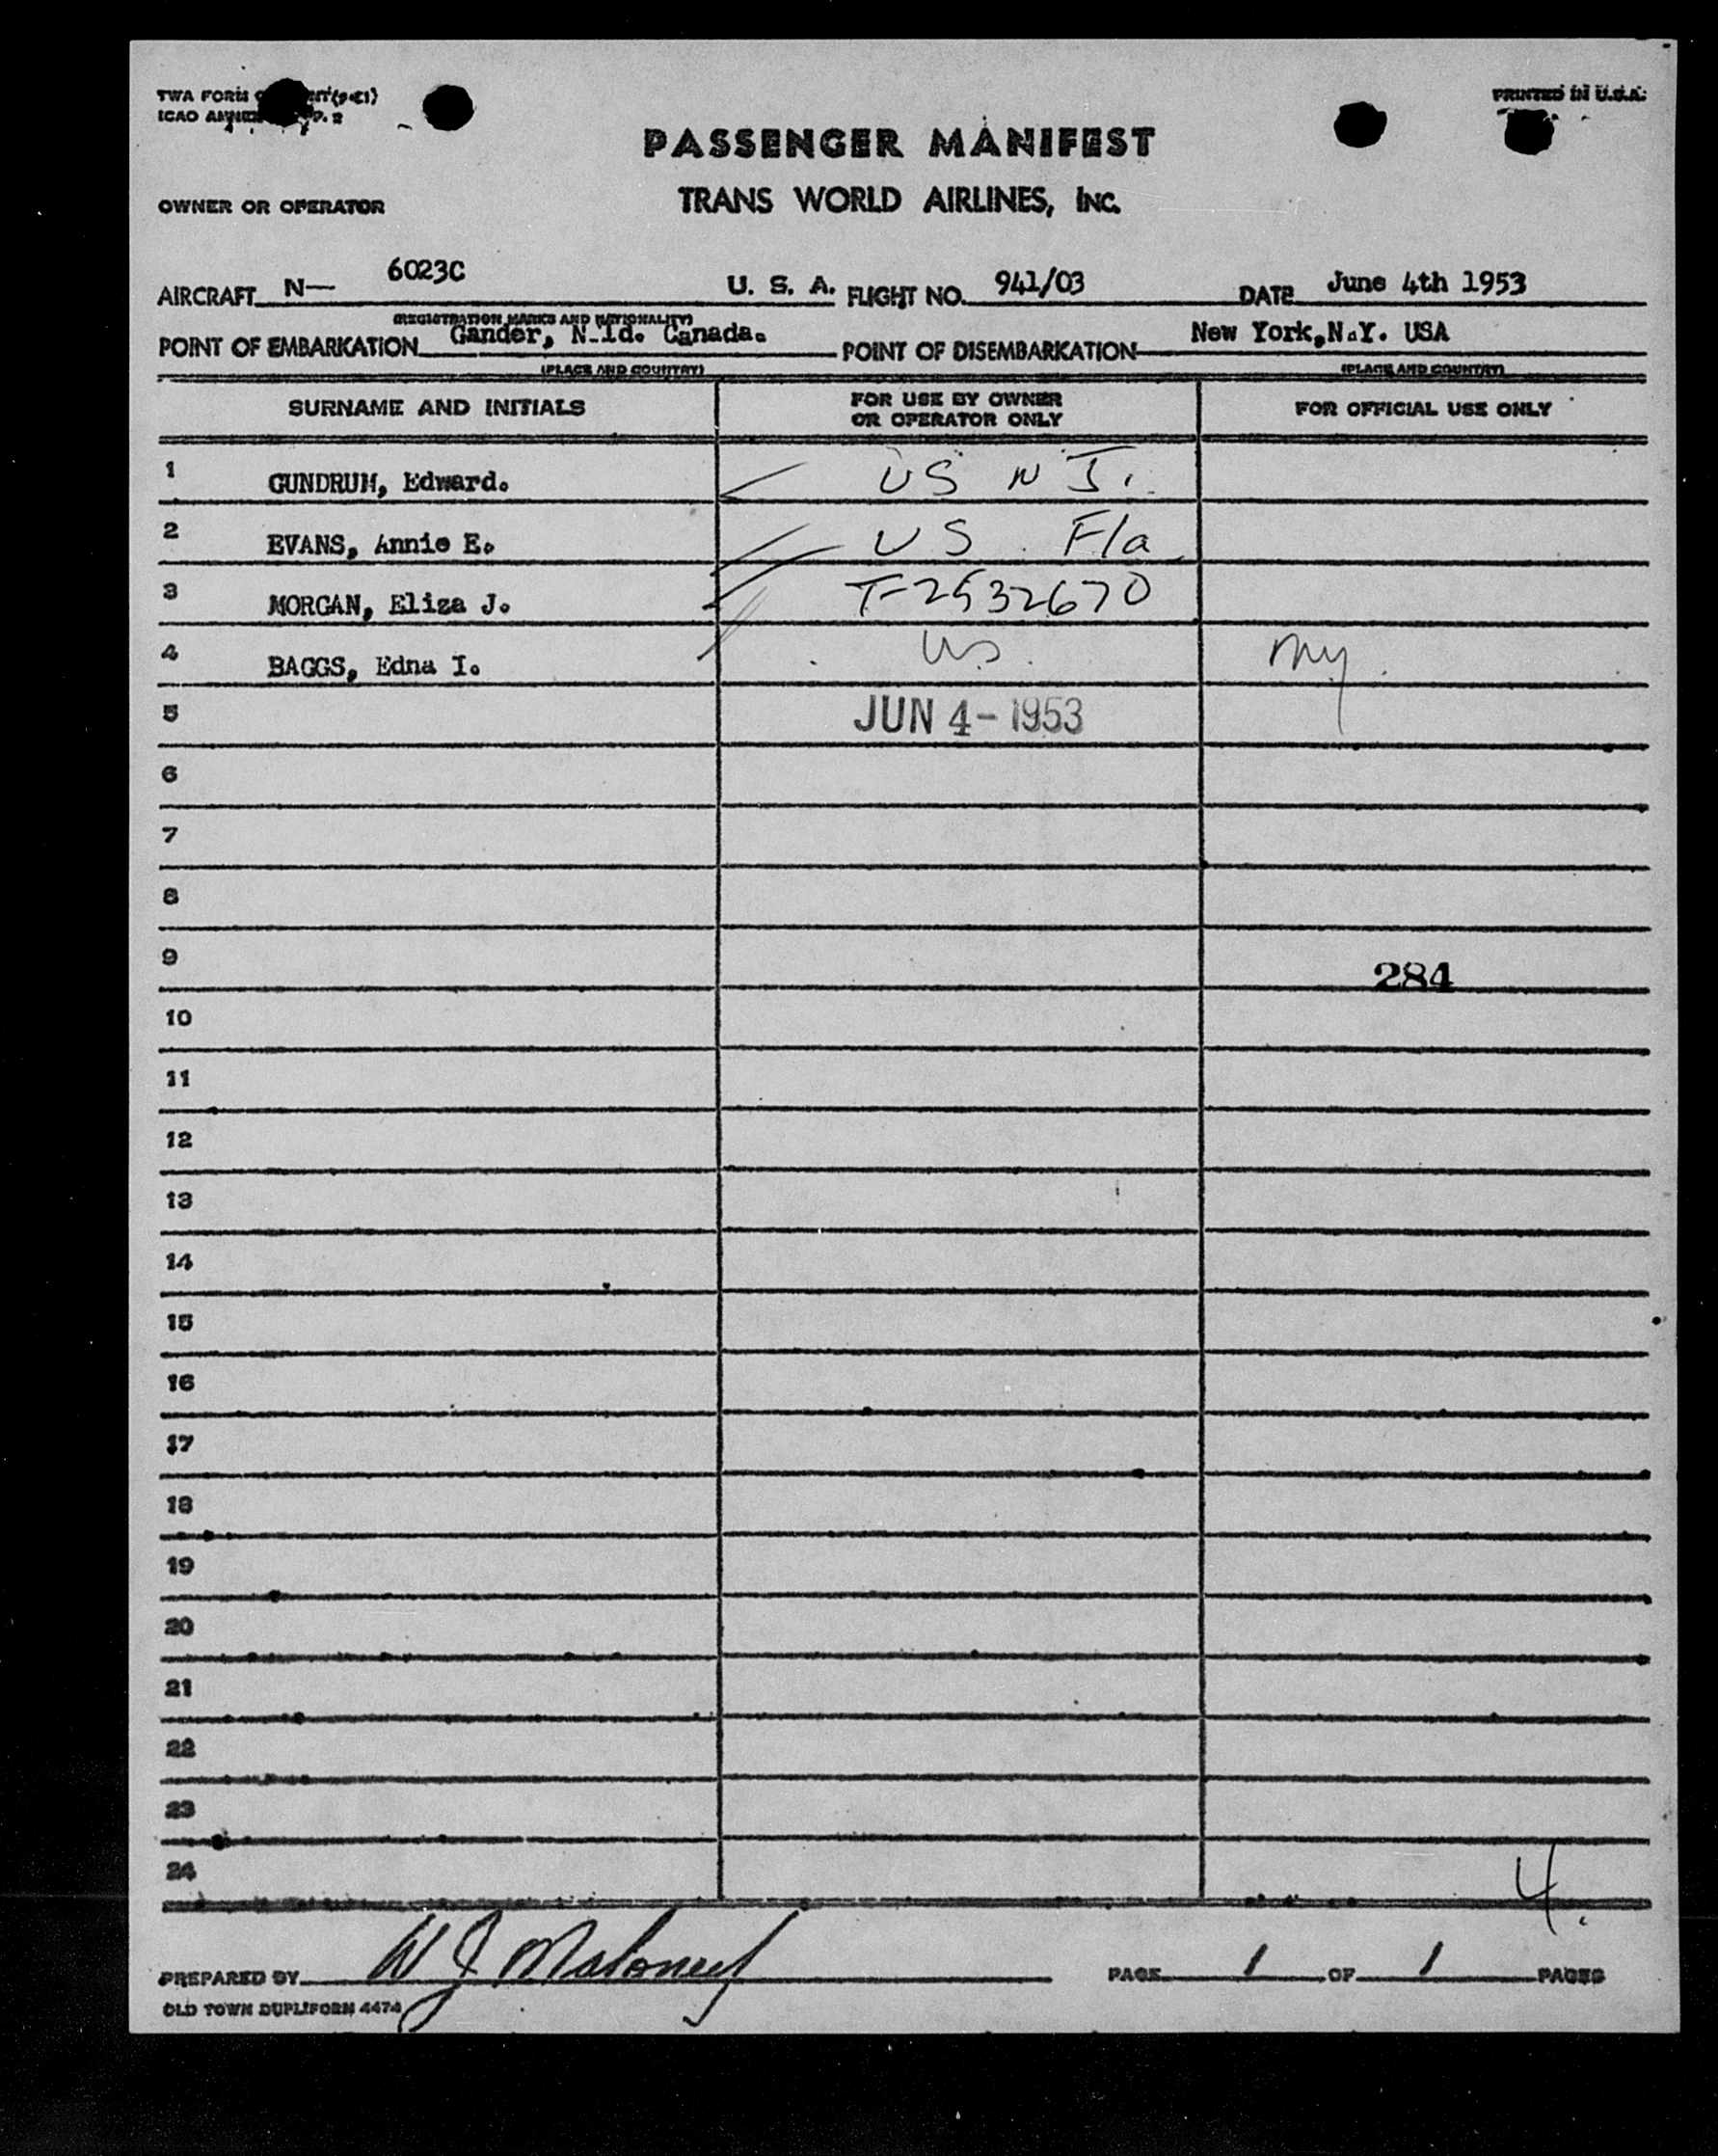 TWA FORM
ICAO ANNEX
PRINTED IN U.S.A.
PASSENGER MANIFEST
OWNER OR OPERATOR TRANS WORLD AIRLINES, INC.
AIRCRAFT N— 6023C U. S. A. FLIGHT NO. 941/03 DATE June 4th 1953
(REGISTRATION MARKS AND NATIONALITY)
POINT OF EMBARKATION Gander, N.ld. Canada. POINT OF DISEMBARKATION New York,N.Y. USA
(PLACE AND COUNTRY) (PLACE AND COUNTRY)
SURNAME AND INITIALS FOR USE BY OWNER OR OPERATOR ONLY FOR OFFICIAL USE ONLY
1 GUNDRUM, Edward. US N J.
2 EVANS, Annie E. US Fla
3 MORGAN, Eliza J. T-2532670
4 BAGGS, Edna I. US NY
5 JUN 4-1953
6
7
8
9 284
10
11
12
13
14
15
16
17
18
19
20
21
22
23
24 4.
PREPARED BY W J Maloney PAGE 1 OF 1 PAGES
OLD TOWN DUPLIFORM 4474